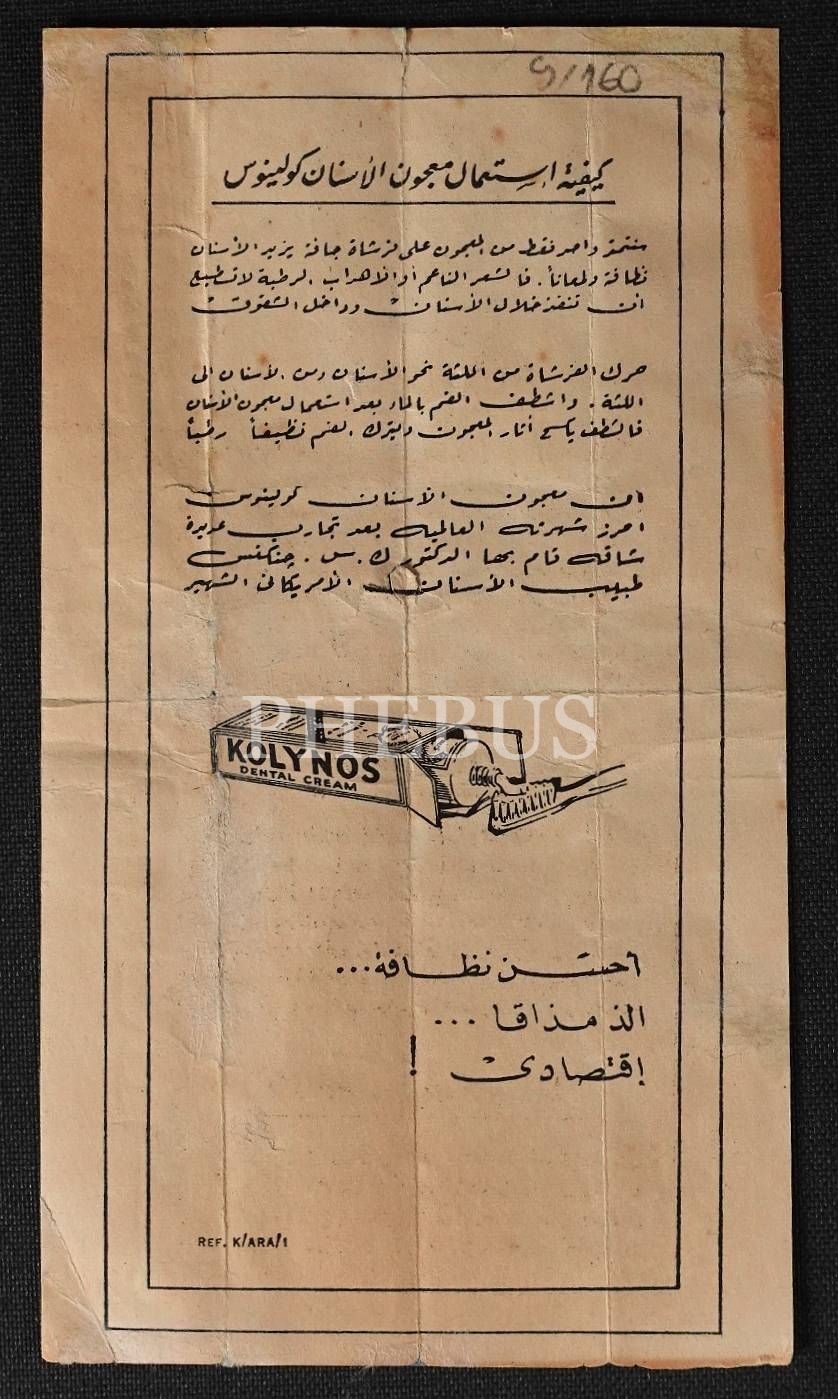 9/160
كيفية إستعمال معجون الأسنان كولينوس
سنتمتر واحد فقط من المعجون على فرشاة جافة يزيد الأسنان
نظافة ولمعاناً. فالشعر الناعم أو الأهداب الرطبة لا تستطيع
ان تنفذ خلال الأسنان وداخل الشقوق
حرك الفرشاة من اللثة نحو الأسنان ومن الأسنان الى
اللثة. واشطف الفم بالماء بعد استعمال معجون الأسنان
فالشطف يكسح آثار المعجون ويترك الفم نظيفاً رطباً
ان معجون الأسنان كولينوس
احرز شهرته العالميه بعد تجارب عديدة
شاقه قام بها الدكتور ك. س. جنكنس
طبيب الأسنان الأمريكاني الشهير
PHEBUS
KOLYNOS
DENTAL CREAM
احسن نظافة...
الذ مذاقا ...
إقتصادى !
REF. K/ARA/1